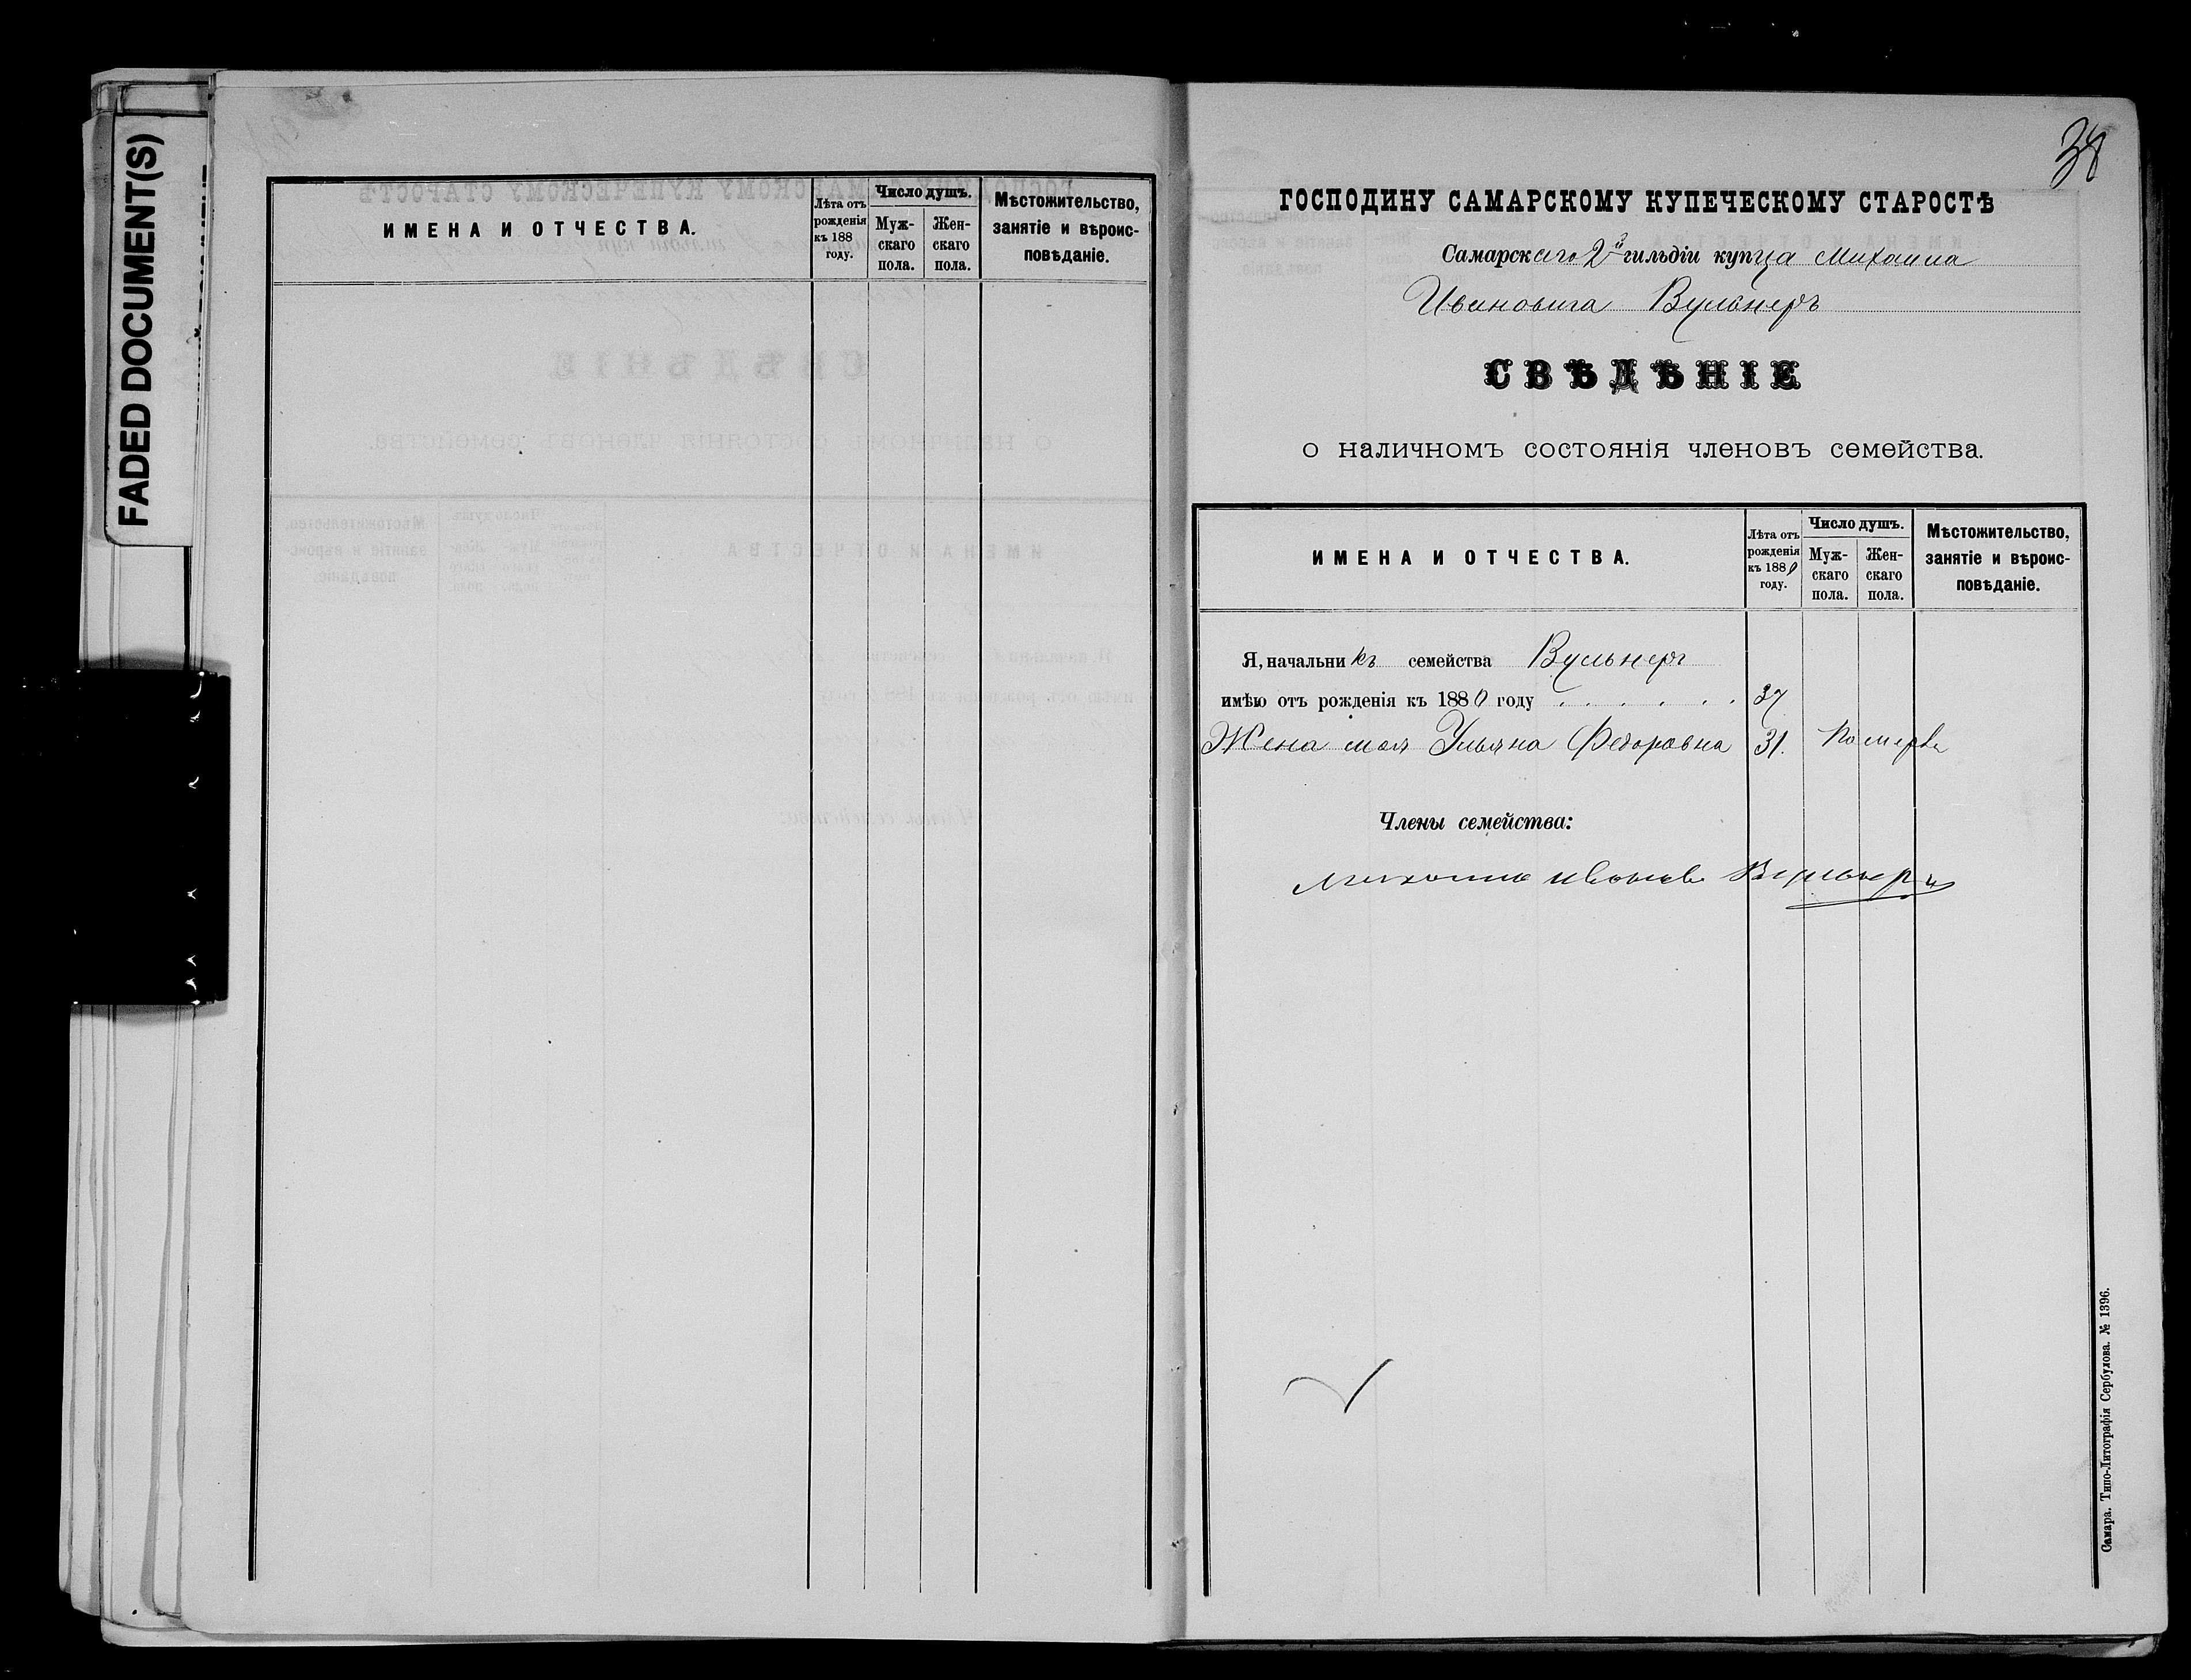 FADED DOCUMENT(S)
ИМЕНА И ОТЧЕСТВА.
Лѣта отъ рожденія къ 188 году.
Число душъ.
Муж-скаго пола.
Жен-скаго пола.
Мѣстожительство, занятіе и вѣроис-повѣданіе.
38
ГОСПОДИНУ САМАРСКОМУ КУПЕЧЕСКОМУ СТАРОСТѢ
Самарскаго 2й гильдіи купца Михаила
Ивановича Вульнеръ
СВѢДѢНІЕ
о наличномъ состоянія членовъ семейства.
ИМЕНА И ОТЧЕСТВА.
Лѣта отъ рожденія къ 1880 году.
Число душъ.
Муж-скаго пола.
Жен-скаго пола.
Мѣстожительство, занятіе и вѣроис-повѣданіе.
Я, начальникъ семейства Вульнеръ
имѣю отъ рожденія къ 1880 году . . . . . . 37
Жена моя Ульяна Федоровна 31.
Члены семейства:
Вульнеръ
Самара. Типо-Литографія Сербулова. № 1396.